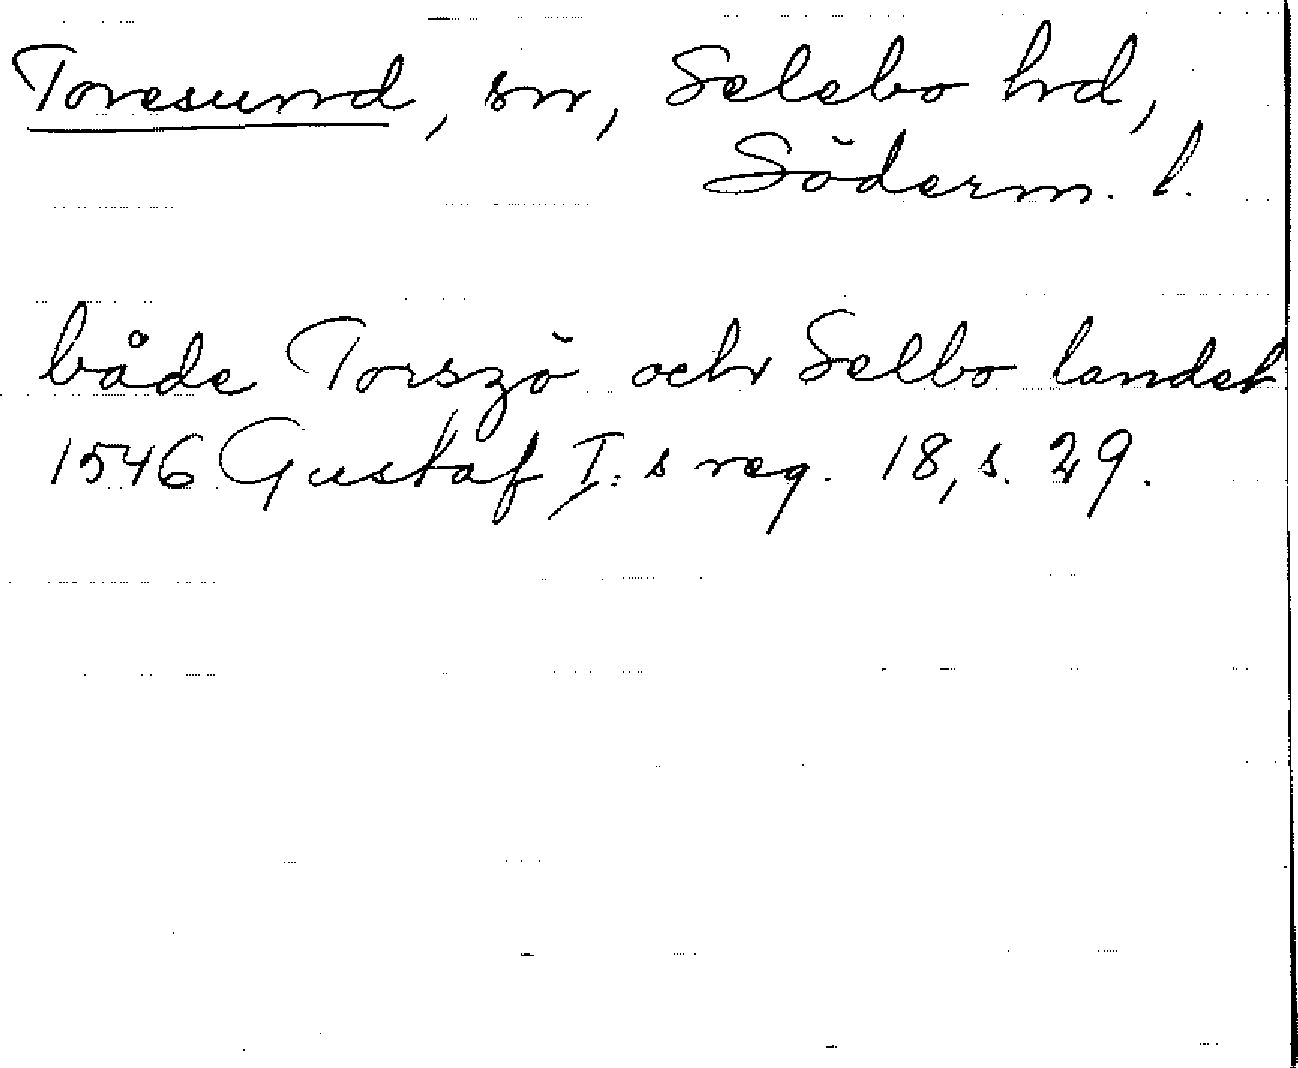 Toresund, sn, Selebo hd,
Söderm. l.
både Torszö och Selbo landet
1546 Gustaf I:s reg. 18, s. 29.